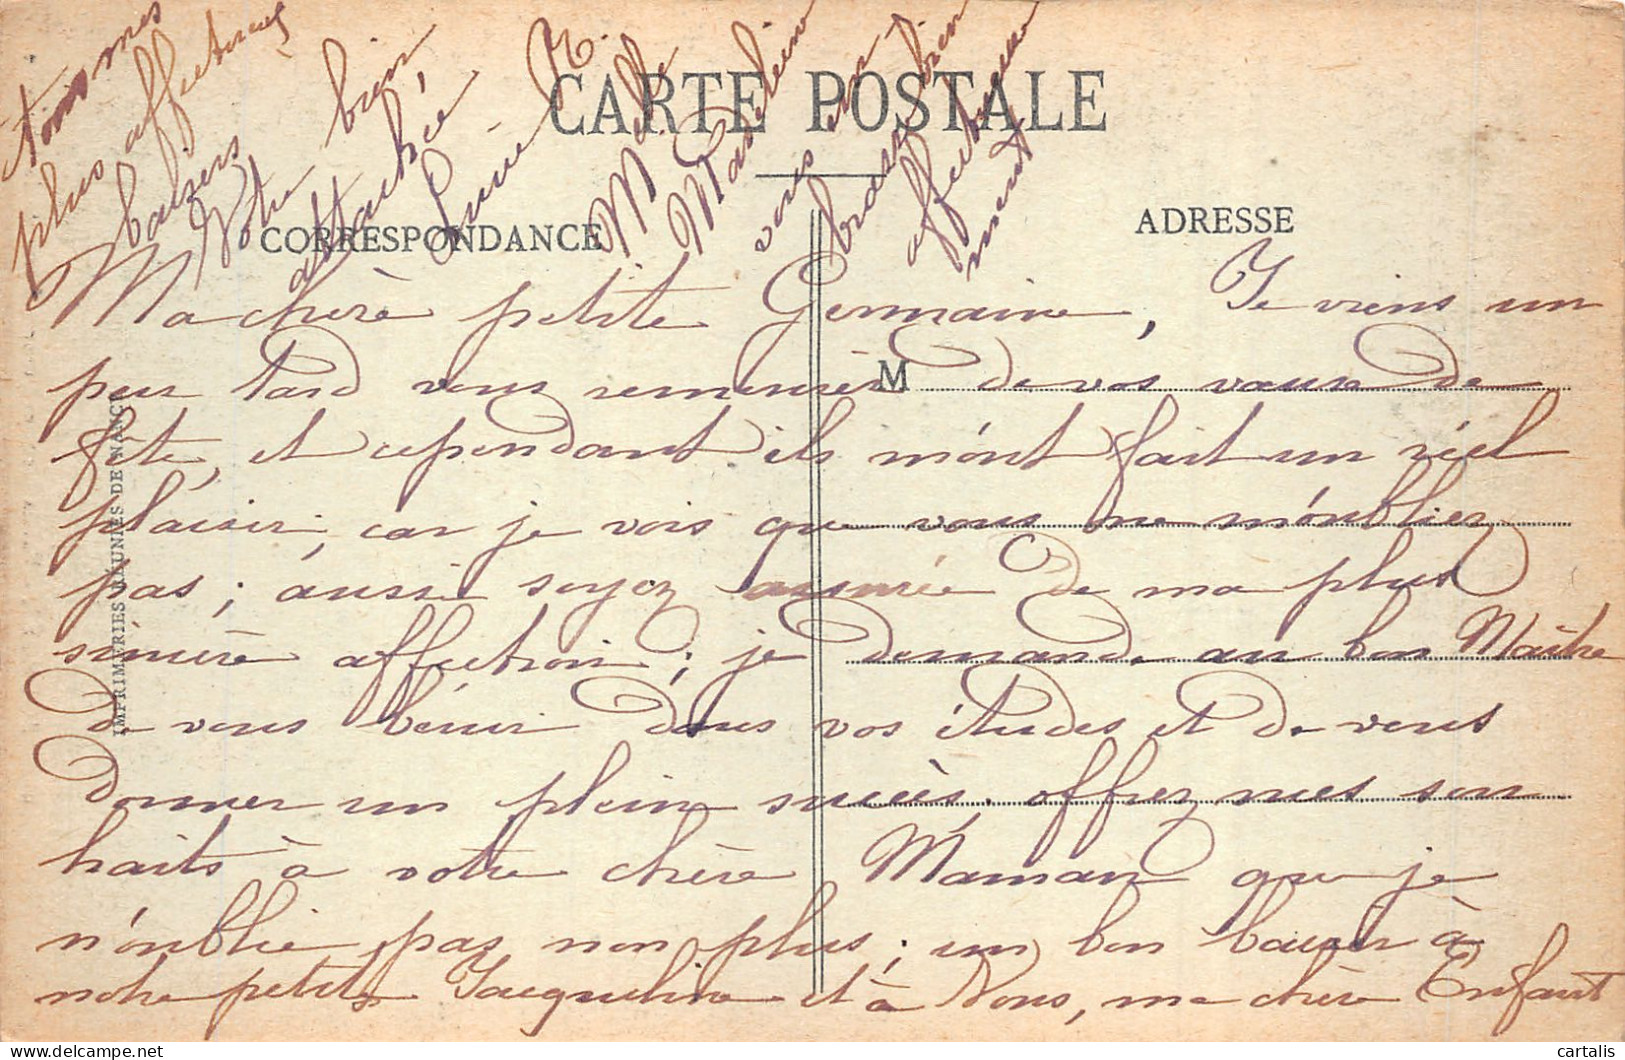 CARTE POSTALE
CORRESPONDANCE
ADRESSE
M
IMPRIMERIES RÉUNIES DE NANCY
Ma chère petite Germaine, Je viens un
peu tard vous remercier de vos vœux de
fête, et cependant ils m'ont fait un réel
plaisir, car je vois que vous ne m'oubliez
pas ; aussi soyez assurée de ma plus
sincère affection ; je demande au bon Maître
de vous bénir dans vos études et de vous
donner un plein succès. offrez mes sou
haits à votre chère Maman que je
n'oublie pas non plus ; un bon baiser à
notre petite Jacqueline et à Vous, ma chère Enfant
tous mes
plus affectueux
baisers
Votre bien
attachée
M.
Melle
Madeleine
vous
embrasse bien
affectueuse
ment
cartalis